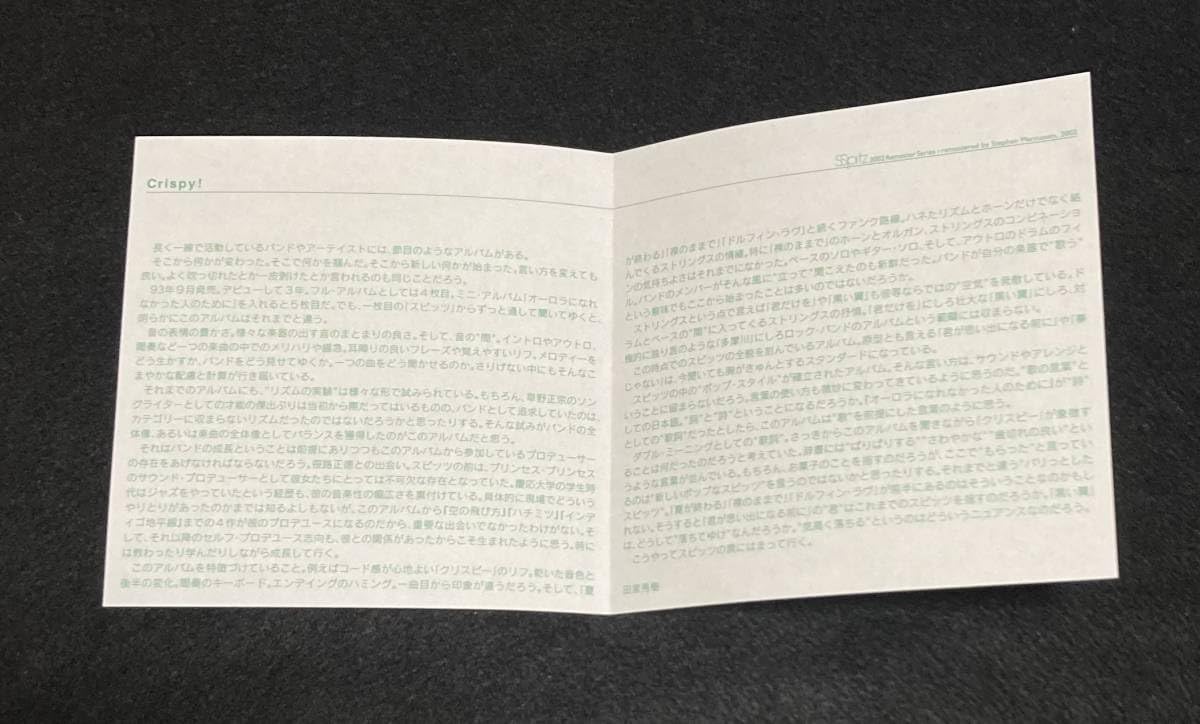 Crispy!
長く一線で活動しているバンドやアーティストには、節目のようなアルバムがある。
そこから何かが変わった。そこで何かを掴んだ。そこから新しい何かが始まった。言い方を変えても
良い。よく吹っ切れたとか一皮剥けたとか言われるのも同じことだろう。
93年9月発売。デビューして3年。フル・アルバムとしては4枚目。ミニ・アルバム「オーロラになれ
なかった人のために」を入れると5枚目だ。でも、一枚目の「スピッツ」からずっと通して聞いてゆくと、
明らかにこのアルバムはそれまでと違う。
音の表情の豊かさ。様々な楽器の出す音のまとまりの良さ。そして、音の"間"。イントロやアウトロ、
間奏など一つの楽曲の中でのメリハリや緩急。耳障りの良いフレーズや覚えやすいリフ。メロディーを
どう生かすか、バンドをどう見せてゆくか。一つの曲をどう聞かせるのか。さりげない中にもそんなこ
まやかな配慮と計算が行き届いている。
それまでのアルバムにも、"リズムの実験"は様々な形で試みられている。もちろん、草野正宗のソン
グライターとしての才能の傑出ぶりは当初から際だってはいるものの、バンドとして追求していたのは、
カテゴリーに収まらないリズムだったのではないだろうかと思ったりする。そんな試みがバンドの全
体像、あるいは楽曲の全体像としてバランスを獲得したのがこのアルバムだと思う。
それはバンドの成長ということは前提にありつつもこのアルバムから参加しているプロデューサー
の存在をあげなければならないだろう。笹路正徳との出会い。スピッツの前は、プリンセス・プリンセス
のサウンド・プロデューサーとして彼女たちにとっては不可欠な存在となっていた。慶応大学の学生時
代はジャズをやっていたという経歴も、彼の音楽性の幅広さを裏付けている。具体的に現場でどういう
やりとりがあったのかまでは知るよしもないが、このアルバムから「空の飛び方」「ハチミツ」「インデ
ィゴ地平線」までの4作が彼のプロデュースになるのだから、重要な出会いでなかったわけがない。そ
して、それ以降のセルフ・プロデュース志向も、彼との関係があったからこそ生まれたように思う。時に
は教わったり学んだりしながら成長して行く。
このアルバムを特徴づけていること。例えばコード感が心地よい「クリスピー」のリフ。乾いた音色と
後半の変化。間奏のキーボード。エンディングのハミング。一曲目から印象が違うだろう。そして、「夏
Spitz 2002 Remaster Series : remastered by Stephen Marcussen, 2002
が終わる」「裸のままで」「ドルフィン・ラヴ」と続くファンク路線。ハネたリズムとホーンだけでなく絡
んでくるストリングスの情緒。特に「裸のままで」のホーンとオルガン、ストリングスのコンビネーショ
ンの気持ちよさはそれまでになかった。ベースのソロやギター・ソロ。そして、アウトロのドラムのフィ
ル。バンドのメンバーがそんな風に"立って"聞こえたのも新鮮だった。バンドが自分の楽器で"歌う"
という意味でもここから始まったことは多いのではないだろうか。
ストリングスという点で言えば「君だけを」や「黒い翼」も彼等ならではの"空気"を発散している。ド
ラムとベースの"間"に入ってくるストリングスの抒情。「君だけを」にしろ壮大な「黒い翼」にしろ、対
極的に独り言のような「多摩川」にしろロック・バンドのアルバムという範疇には収まらない。
この時点でのスピッツの全貌を刻んでいるアルバム。原型とも言える「君が思い出になる前に」や「夢
じゃない」は、今聞いても胸がきゅんとするスタンダードになっている。
スピッツの中の"ポップ・スタイル"が確立されたアルバム。そんな言い方は、サウンドやアレンジと
いうことに留まらないだろう。言葉の使い方も微妙に変わってきているように思うのだ。"歌の言葉"と
しての日本語。"詞"と"詩"ということになるだろうか。「オーロラになれなかった人のために」が"詩"
としての"歌詞"だったとしたら、このアルバムは"歌"を前提にした言葉のように思う。
ダブル・ミーニングとしての"歌詞"。さっきからこのアルバムを聞きながら「クリスピー」が意味す
ることは何だったのだろうと考えていた。辞書には"ぱりぱりする""さわやかな""歯切れの良い"とい
うような言葉が並んでいる。もちろん、お菓子のことを指すのだろうが、ここで"もらった"と言ってい
るのは"新しいポップなスピッツ"を言うのではないかと思ったりする。それまでと違う"パリッとした
スピッツ"。「夏が終わる」「裸のままで」「ドルフィン・ラヴ」が前半にあるのはそういうことなのかもし
れない。そうすると「君が思い出になる前に」の"君"はこれまでのスピッツを指すのだろうか。「黒い翼」
は、どうして"落ちてゆけ"なんだろうか。"気高く落ちる"というのはどういうニュアンスなのだろう。
こうやってスピッツの罠にはまって行く。
田家秀樹